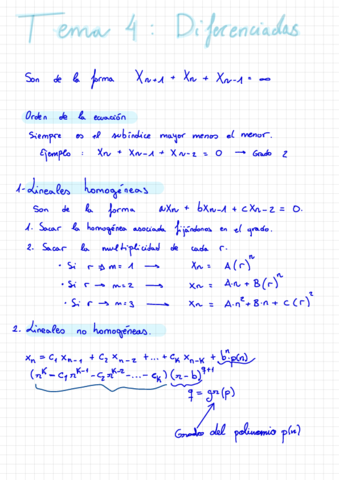 Tema 4: Diferenciadas
Son de la forma Xn+1 + Xn + Xn-1 = ∞
Orden de la ecuación
Siempre es el subíndice mayor menos el menor.
Ejemplo: Xn + Xn-1 + Xn-2 = 0 → Grado 2
1-Lineales homogéneas
Son de la forma aXn + bXn-1 + cXn-2 = 0.
1. Sacar la homogénea asociada fijándonos en el grado.
2. Sacar la multiplicidad de cada r.
· Si r → m = 1 → Xn = A(r)^n
· Si r → m = 2 → Xn = A·n + B(r)^n
· Si r → m = 3 → Xn = A·n² + B·n + C(r)^2
2. Lineales no homogéneas.
xn = C1 Xn-1 + C2 Xn-2 + ... + CK Xn-K + b^n·p(n)
(r^K - C1 r^K-1 - C2 r^K-2 - ... - CK) (r-b)^q+1
q = gr(p)
Grado del polinomio p(n)